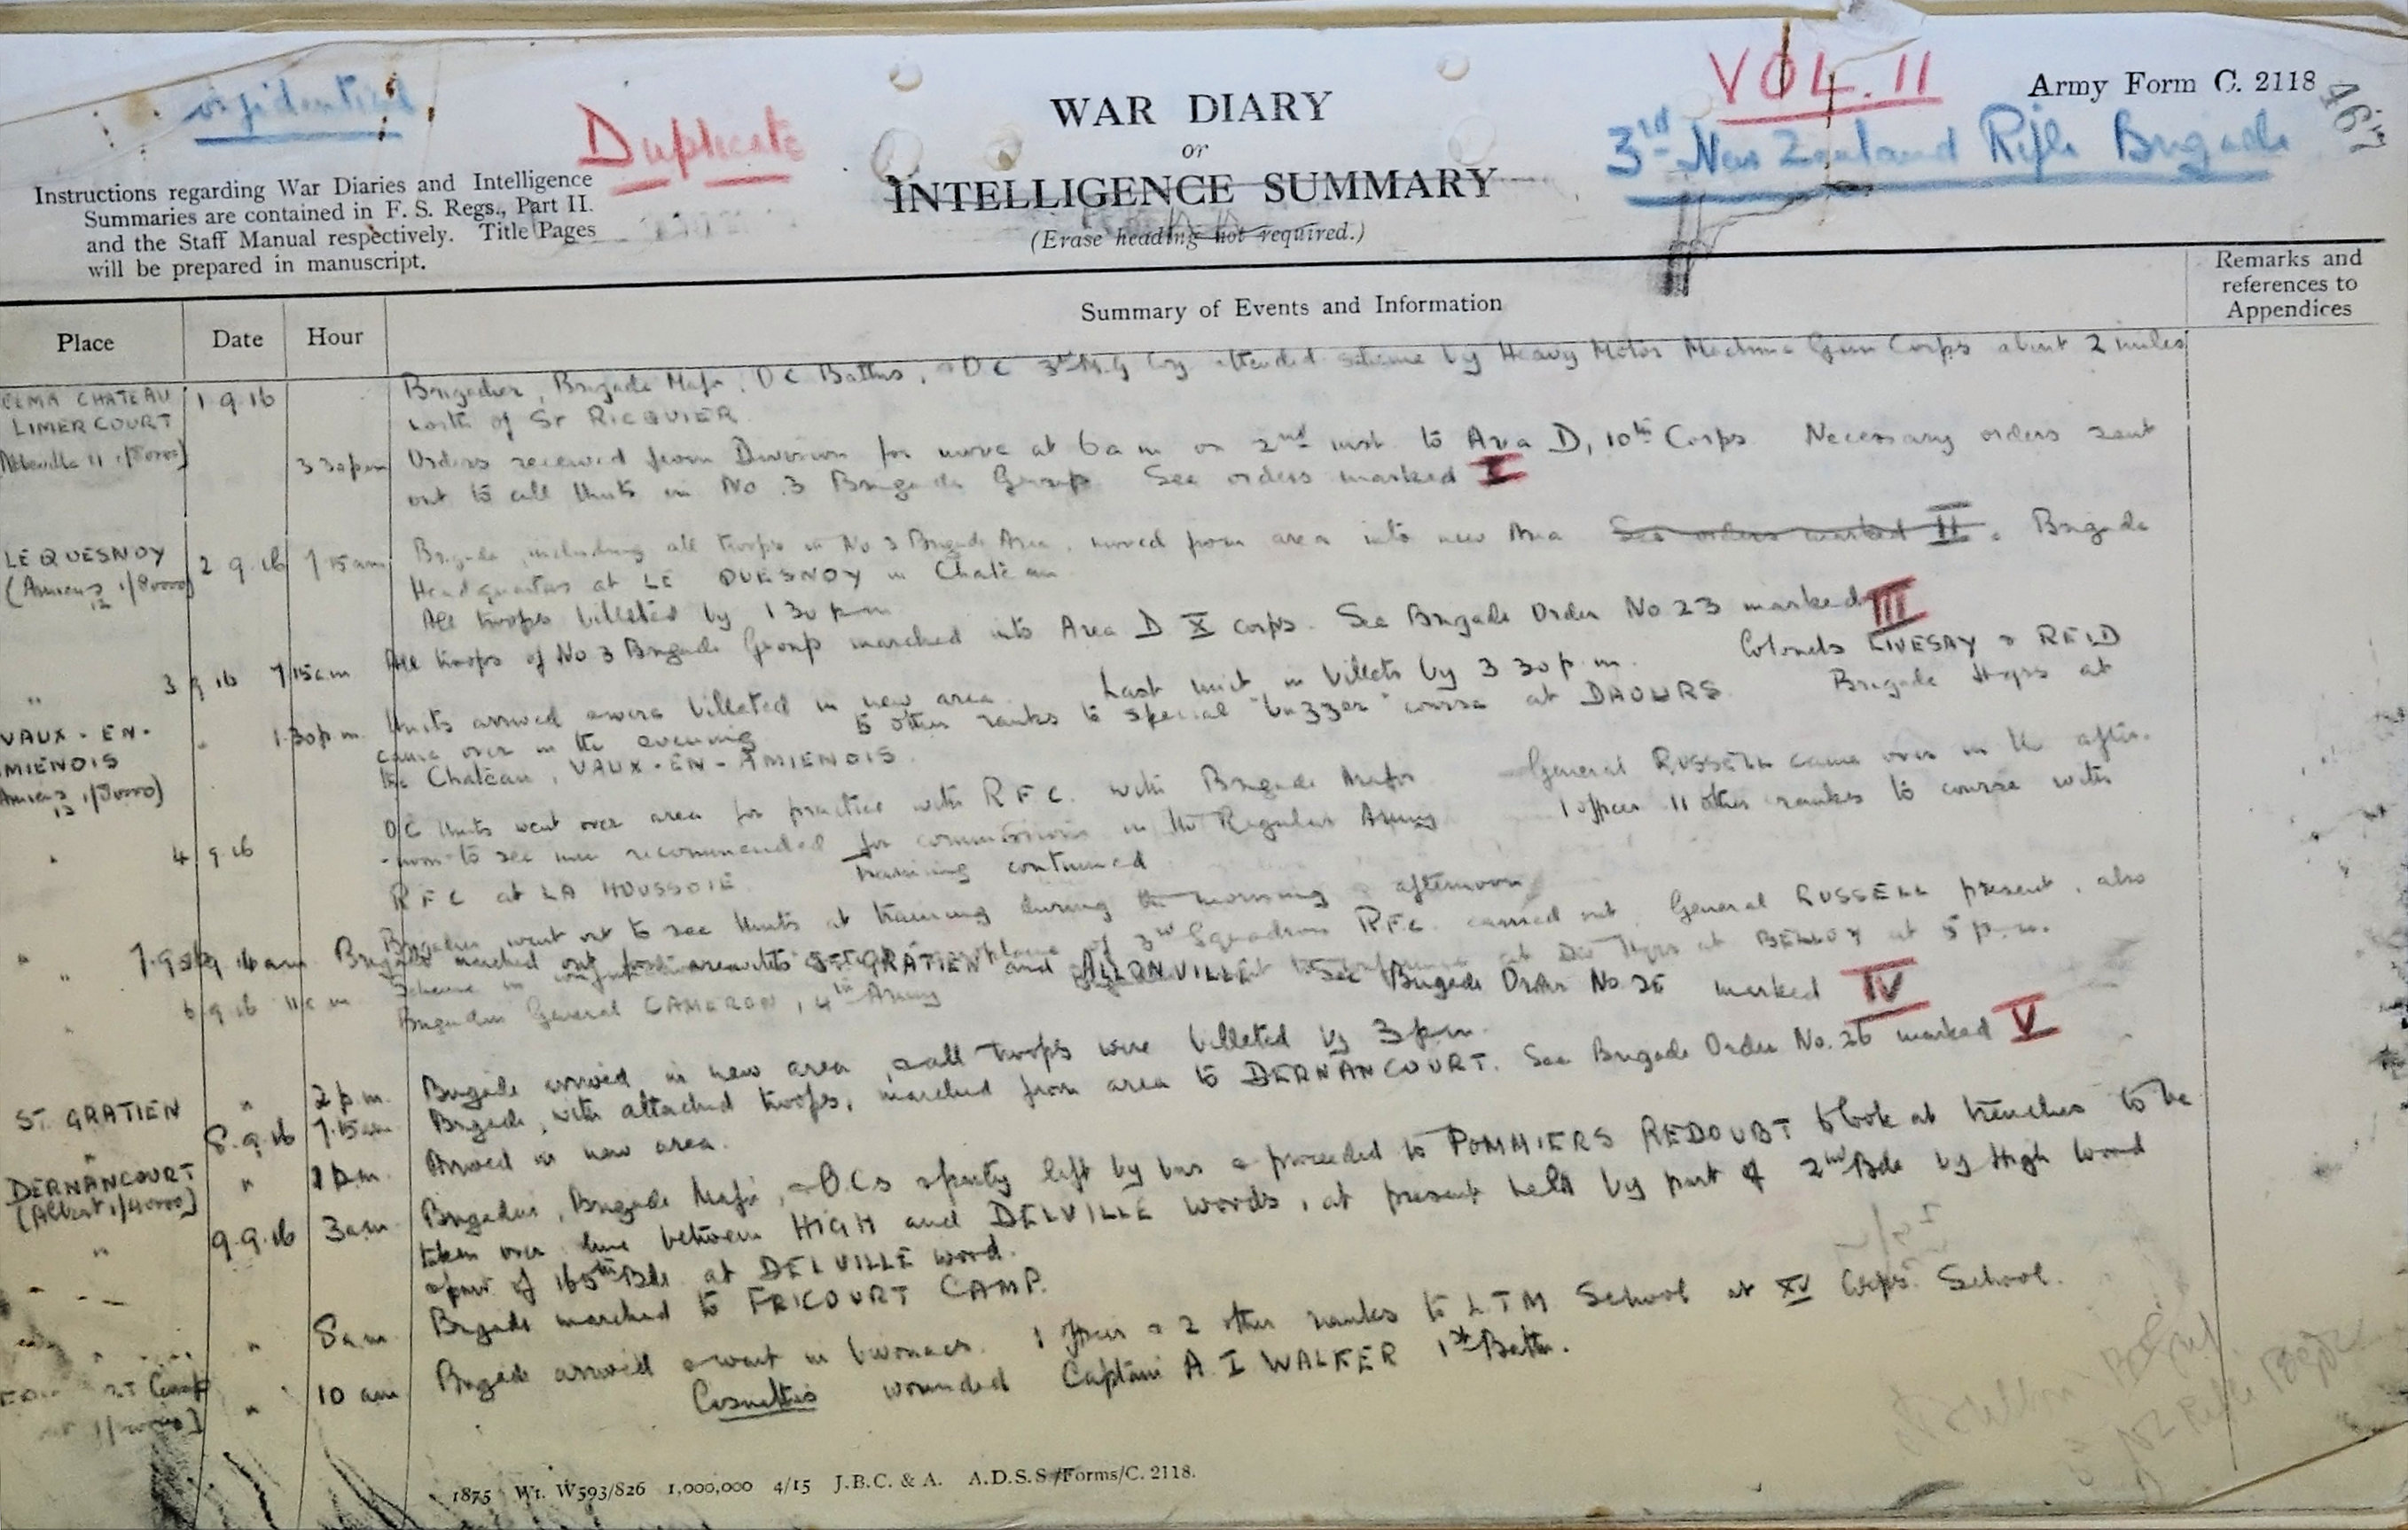 Duplicate
WAR DIARY
or
INTELLIGENCE SUMMARY
(Erase heading not required.)
VOL. II
3rd New Zealand Rifle Brigade
Army Form C. 2118
Instructions regarding War Diaries and Intelligence
Summaries are contained in F. S. Regs., Part II.
and the Staff Manual respectively. Title Pages
will be prepared in manuscript.
Place Date Hour Summary of Events and Information Remarks and
references to
Appendices
CHATEAU 1 9.16 Brigadier, Brigade Major, OC Battns, OC 3rd M.G Coy attended scheme by Heavy Motor Machine Gun Corps about 2 miles
LIMERCOURT north of St RICQUIER
3 30pm Orders received from Division for move at 6 a m on 2nd inst to Area D, 10th Corps Necessary orders sent
out to all Units in No. 3 Brigade Group See orders marked I
LE QUESNOY 2 9.16 7 15am Brigade, including all troops in No 3 Brigade Area, moved from area into new Area See orders marked II. Brigade
(Amiens 12 1/80000) Headquarters at LE QUESNOY in Chateau
All troops billeted by 1 30 pm
" 3 9 16 7 15am All troops of No 3 Brigade Group marched into Area D X corps. See Brigade Order No 23 marked III
VAUX-EN- " 1.30p m. Units arrived & were billeted in new area. Last unit in billets by 3 30 p.m. Colonels LIVESAY & REID
came over in the evening 5 other ranks to special "buzzer" course at DAOURS Brigade Hqrs at
MIENOIS the Chateau, VAUX-EN-AMIENOIS.
" 4 9 16 OC Units went over area for practice with R.F.C. with Brigade Major General RUSSELL came over in the after-
-noon to see men recommended for commissions in the Regular Army 1 officer 11 other ranks to course with
R F C at LA HOUSSOIE. Training continued
" Brigadier went out to see Units at training during the morning & afternoon
" 7.9.16 9.16am Brigade marched out for area ST GRATIEN and ALLONVILLE See Brigade Order No 25 marked IV
6 9 16 11 a m Scheme in of 3rd Squadron R.F.C. carried out. General RUSSELL present, also
Brigadier General CAMERON, 4th Army at Div Hqrs at BELLOY at 5 p.m.
ST. GRATIEN " 2 p m. Brigade arrived in new area & all troops were billeted by 3 pm.
" 8.9.16 7.15am Brigade, with attached troops, marched from area to DERNANCOURT. See Brigade Order No. 26 marked V
DERNANCOURT " 1 p.m. Arrived in new area.
(Albert 1/40000)
" 9.9.16 3am Brigadier, Brigade Major, & O.Cs & party left by bus & proceeded to POMMIERS REDOUBT to look at trenches to be
taken over, line between HIGH and DELVILLE woods, at present held by part of 2nd Bde by High Wood
& part of 165th Bde at DELVILLE wood.
" 8am Brigade marched to FRICOURT CAMP.
Camp " 10 am Brigade arrived & went in bivouacs. 1 officer & 2 other ranks to L T M School at XV Corps School.
Casualties wounded Captain A. I WALKER 1st Battn.
1875 Wt. W593/826 1,000,000 4/15 J.B.C. & A. A.D.S.S./Forms/C. 2118.